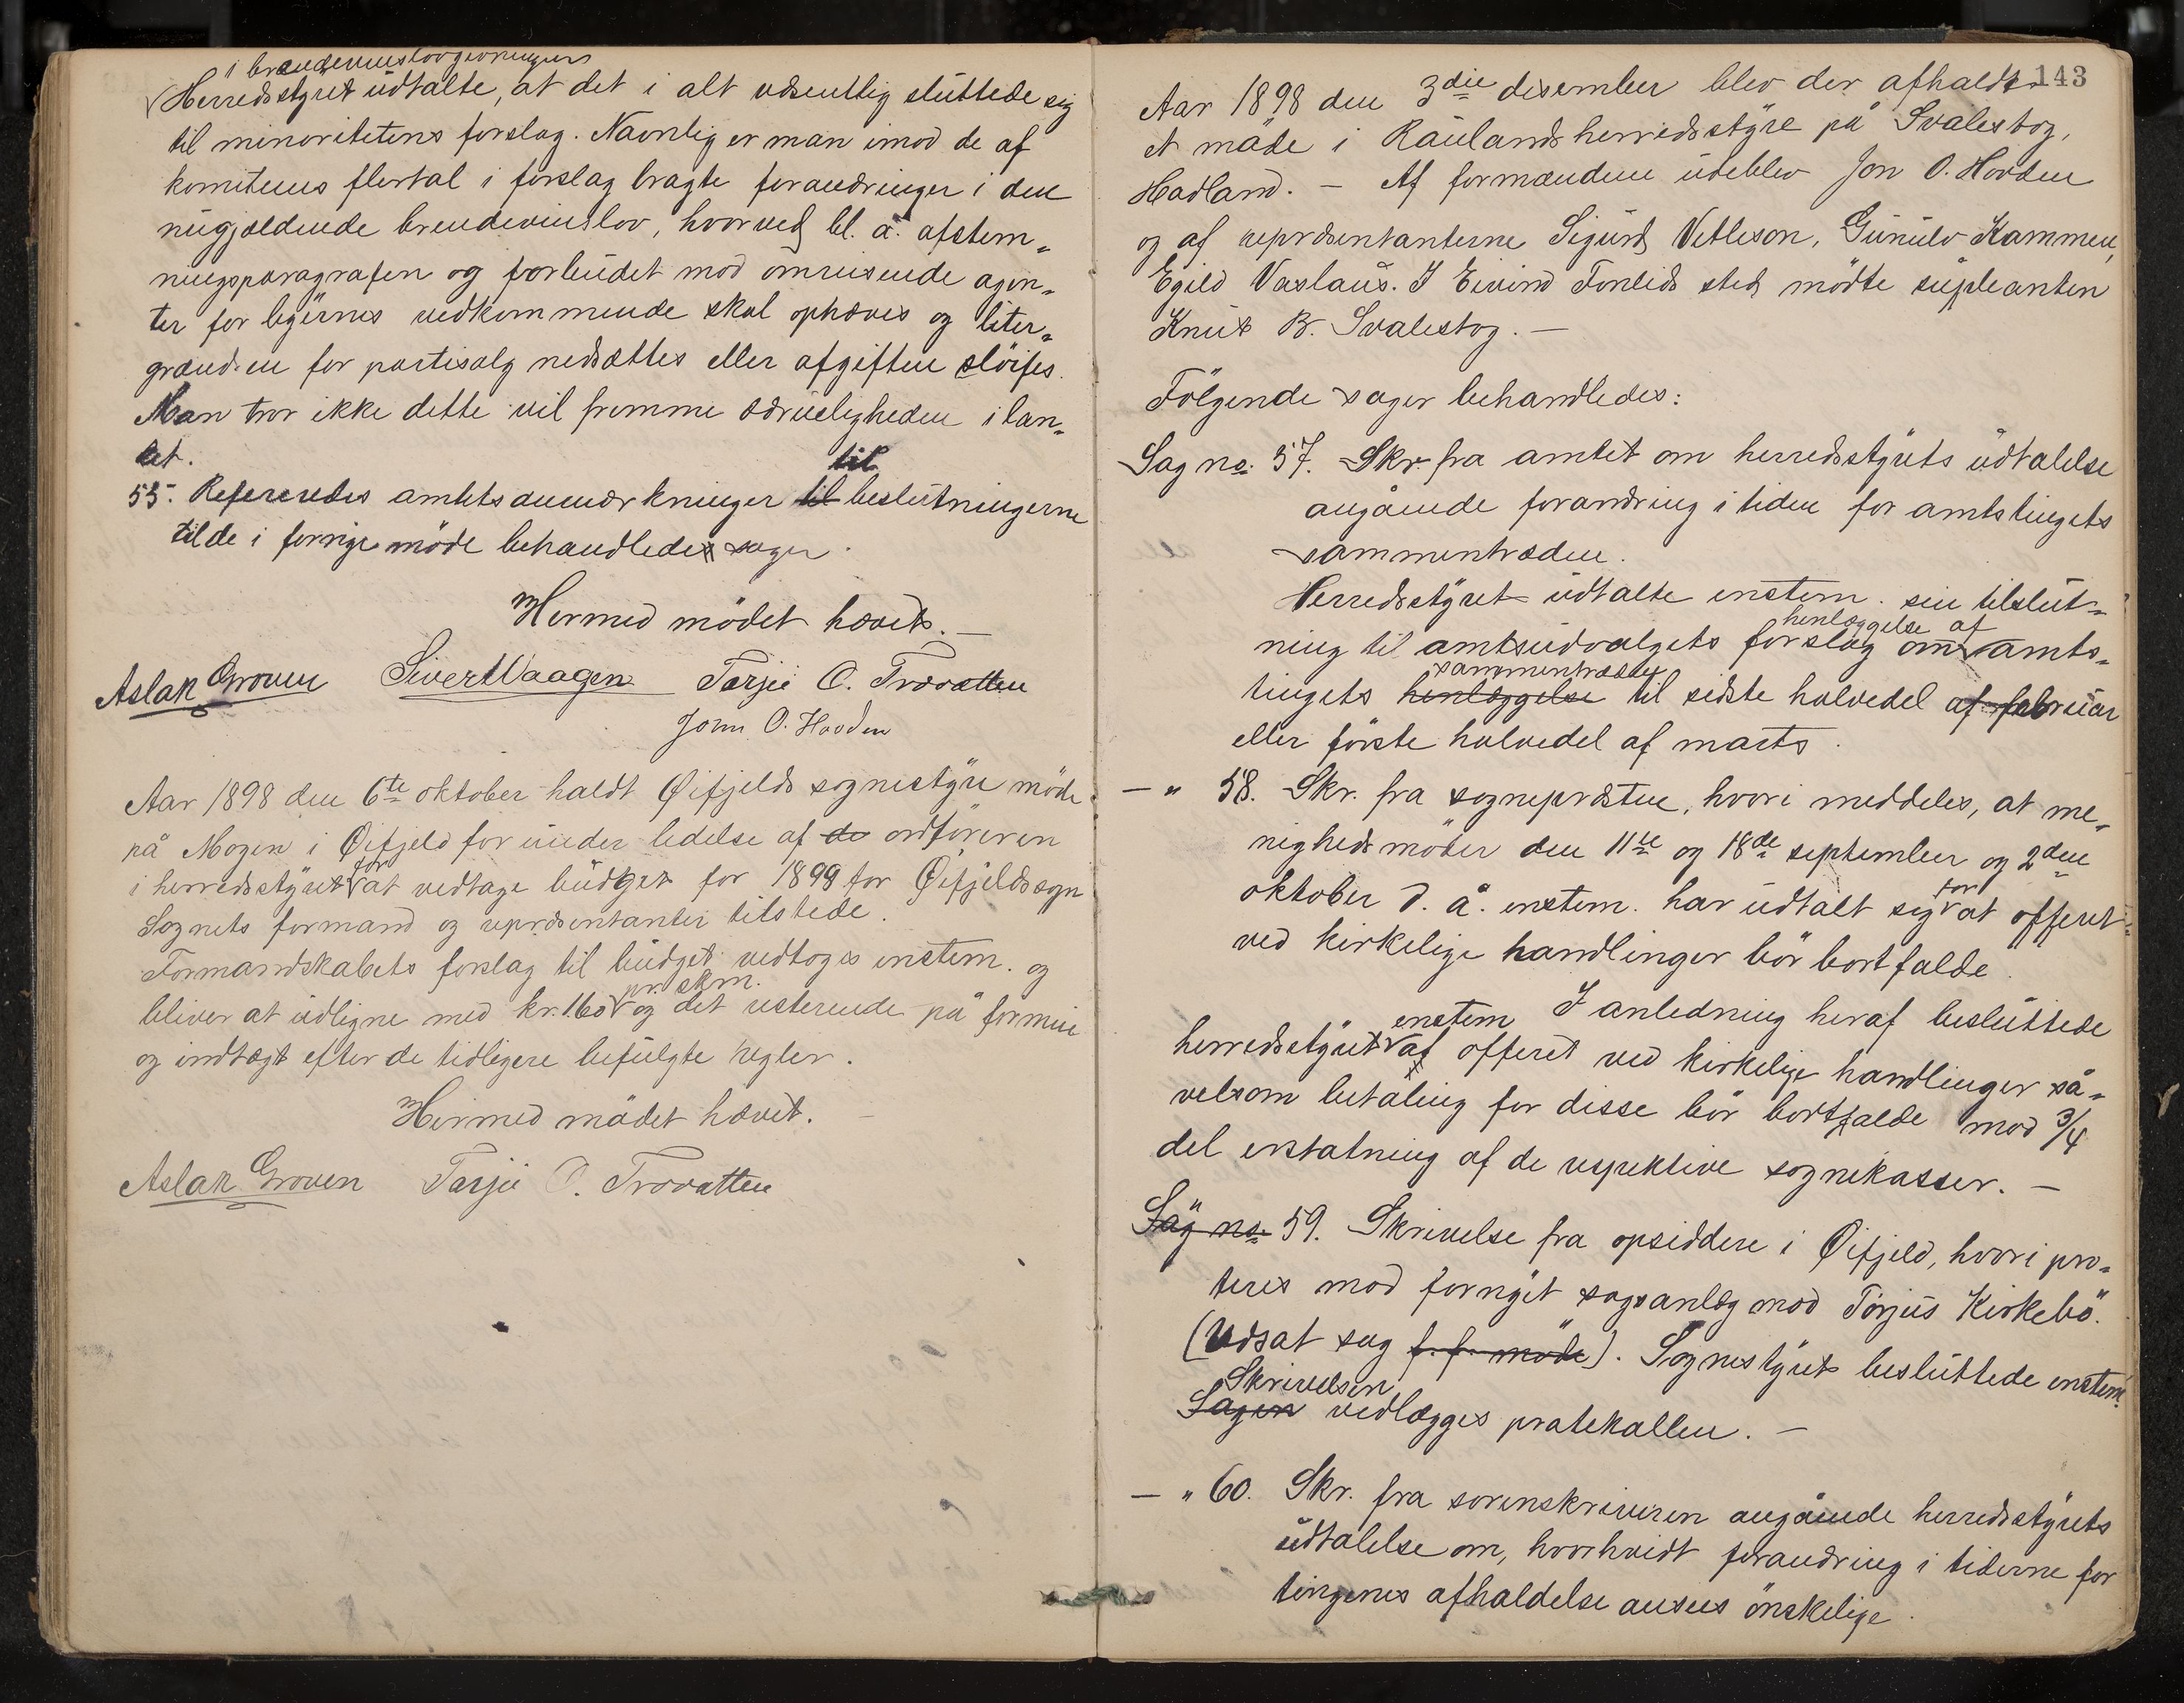 i brændevinslovgivningen
Herredsstyret udtalte, at det i alt vdsentlig sluttede sig
til minoritetens forslag. Navnlig er man imod de af
komiteens flertal i forslag bragte forandringer i den
nugjældende brendevinslov, hvorved bl. a. afstem„
ningsparagrafen og forbudet mod omreisende agen„
ter for byernes vedkommende skal ophæves og liter„
grændsen for partisalg nedsættes eller afgiften slöifes.
Man tror ikke dette vil fremme ædrueligheden i lan„
det.
til
55. Refereredes amtets anmærkninger til beslutningerne
til de i forrige möde behandlede sager.
Hermed mödet hævet. —
Aslak Groven Sivert Vaagen Tarjei O. Trovatten
John O. Hovden
Aar 1898 den 6te oktober haldt Øifjelds sognestyre möde
på Mogen i Øifjeld for under ledelse af de ordföreren
for
i herredsstyret at vedtage budget for 1899 for Øifjeldssogn
Sognets formand og reprdsentanter tilstede.
Formandskabets forslag til budget vedtoges enstem. og
pr. skm.
bliver at udligne med kr. 1.60 og det resterende på formue
og indtægt efter de tidligere befulgte regler.
Hermed mödet hævet. —
Aslak Groven Tarjei O. Trovatten
143
Aar 1898 den 3die desember blev der afholdt
et möde i Raulands herredsstyre på Svalestog,
Hadland. — Af formændene udeblev Jon O. Hovden
og af reprdsentanterne Sigurd Vetleson, Gunulv Kammen,
Egild Vaslaus. I Eivind Fonlids sted mödte supleanten
Knut B. Svalestog. —
Fölgende sager behandledes:
Sag no. 57. Skr. fra amtet om herredsstyrets udtalelse
angående forandring i tiden for amtstingets
sammentræden.
Herredsstyret udtalte enstem. sin tilslut„
henlæggelse af
ning til amtsudvalgets forslag om amts„
sammentræden
tingets henlæggelse til sidste halvedel af februar
eller förste halvedel af marts.
— „ 58. Skr. fra sogneprdsten, hvori meddeles, at me„
nighedsmöder den 11te og 18de september og 2den
for
oktober d. å. enstem. har udtalt sig at offeret
ved kirkelige handlinger bör bortfalde.
I anledning heraf besluttede
enstem
herredsstyret at offeret ved kirkelige handlinger så„
velsom betaling for disse bör bortfalde mod 3/4
del erstatning af de respektive sognekasser. —
„
Sag no. 59. Skrivelse fra opsiddere i Øifjeld, hvori pro„
teres mod fornyet sagsanlæg mod Torjus Kirkebö.
(Udsat sag f. f. möde). Sognestyret besluttede enstem.
Skrivelsen
Sagen vedlægges protokollen. —
— „ 60. Skr. fra sorenskriveren angående herredsstyrets
udtalelse om, hvorhvidt forandring i tiderne for
tingenes afholdelse ansees önskelige.